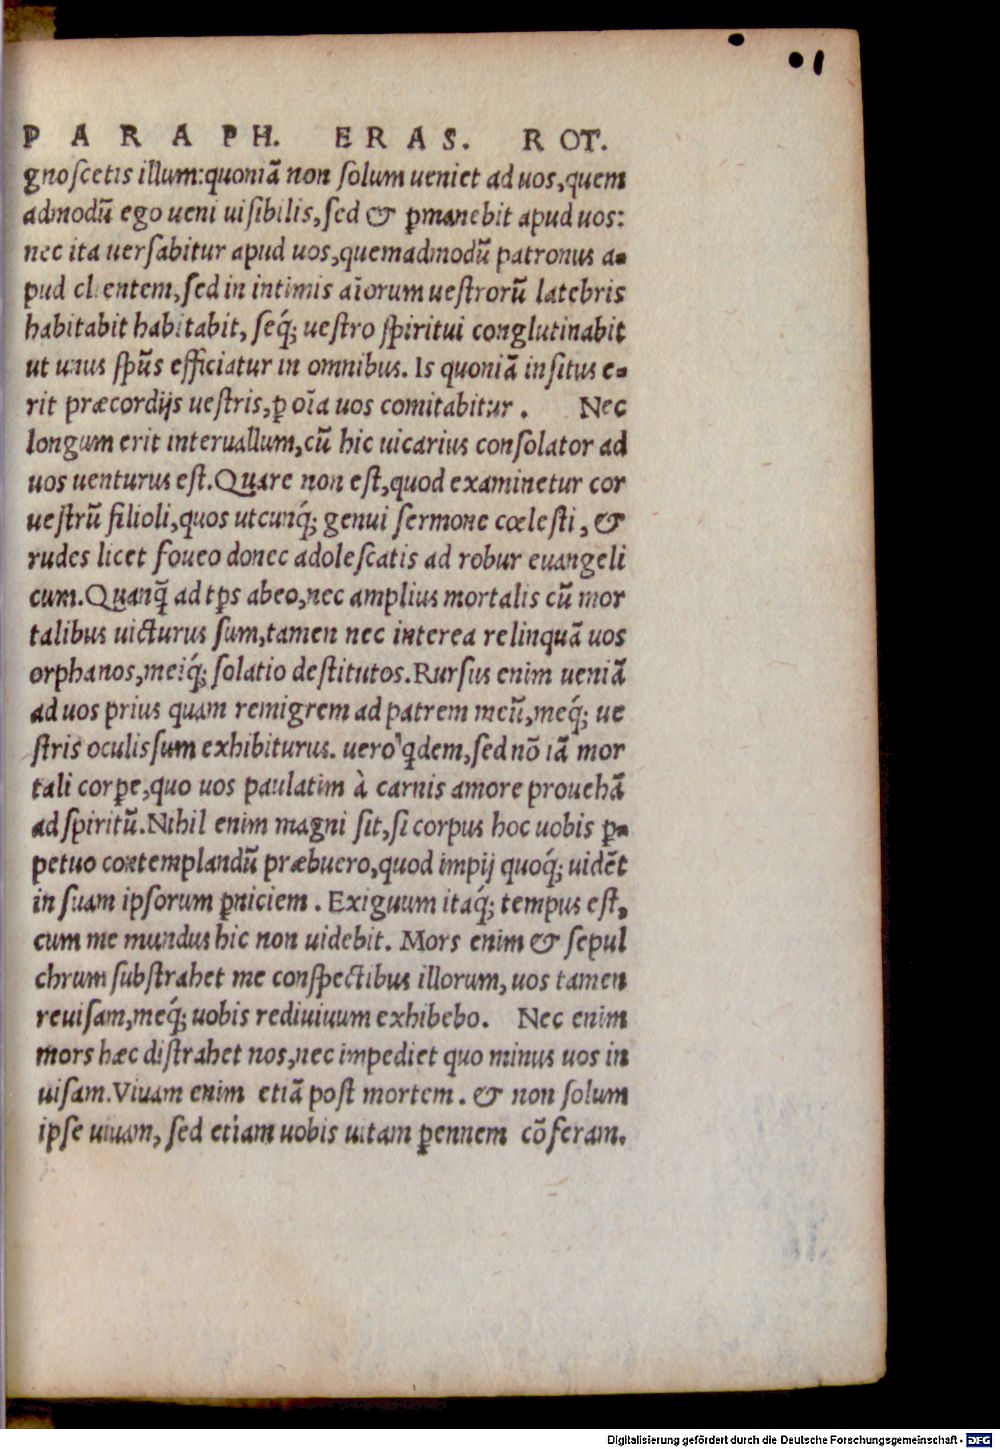 PARAPH. ERAS. ROT.
gnoscetis illum: quoniā non solum ueniet ad uos, quem
admodū ego ueni uisibilis, sed & ꝑmanebit apud uos:
nec ita uersabitur apud uos, quemadmodū patronus a-
pud clientem, sed in intimis aīorum uestrorū latebris
habitabit habitabit, seq́; uestro spiritui conglutinabit
ut unus sp̄us efficiatur in omnibus. Is quoniā insitus e-
rit præcordijs uestris, ꝑ oīa uos comitabitur. Nec
longum erit interuallum, cū hic uicarius consolator ad
uos uenturus est. Quare non est, quod examinetur cor
uestrū filioli, quos utcunq́; genui sermone cœlesti, &
rudes licet foueo donec adolescatis ad robur euangeli
cum. Quanq̄ ad tp̄s abeo, nec amplius mortalis cū mor
talibus uicturus sum, tamen nec interea relinquā uos
orphanos, meiq́; solatio destitutos. Rursus enim ueniā
ad uos prius quam remigrem ad patrem meū, meq́; ue
stris oculis sum exhibiturus. uero qdem, sed nō iā mor
tali corꝑe, quo uos paulatim à carnis amore prouehā
ad spiritū. Nihil enim magni sit, si corpus hoc uobis ꝑ-
petuo contemplandū præbuero, quod impij quoq́; uidēt
in suam ipsorum ꝑniciem. Exiguum itaq́; tempus est,
cum me mundus hic non uidebit. Mors enim & sepul
chrum substrahet me conspectibus illorum, uos tamen
reuisam, meq́; uobis rediuiuum exhibebo. Nec enim
mors hæc distrahet nos, nec impediet quo minus uos in
uisam. Viuam enim etiā post mortem. & non solum
ipse uiuam, sed etiam uobis uitam ꝑennem cōferam.
Digitalisierung gefördert durch die Deutsche Forschungsgemeinschaft - DFG